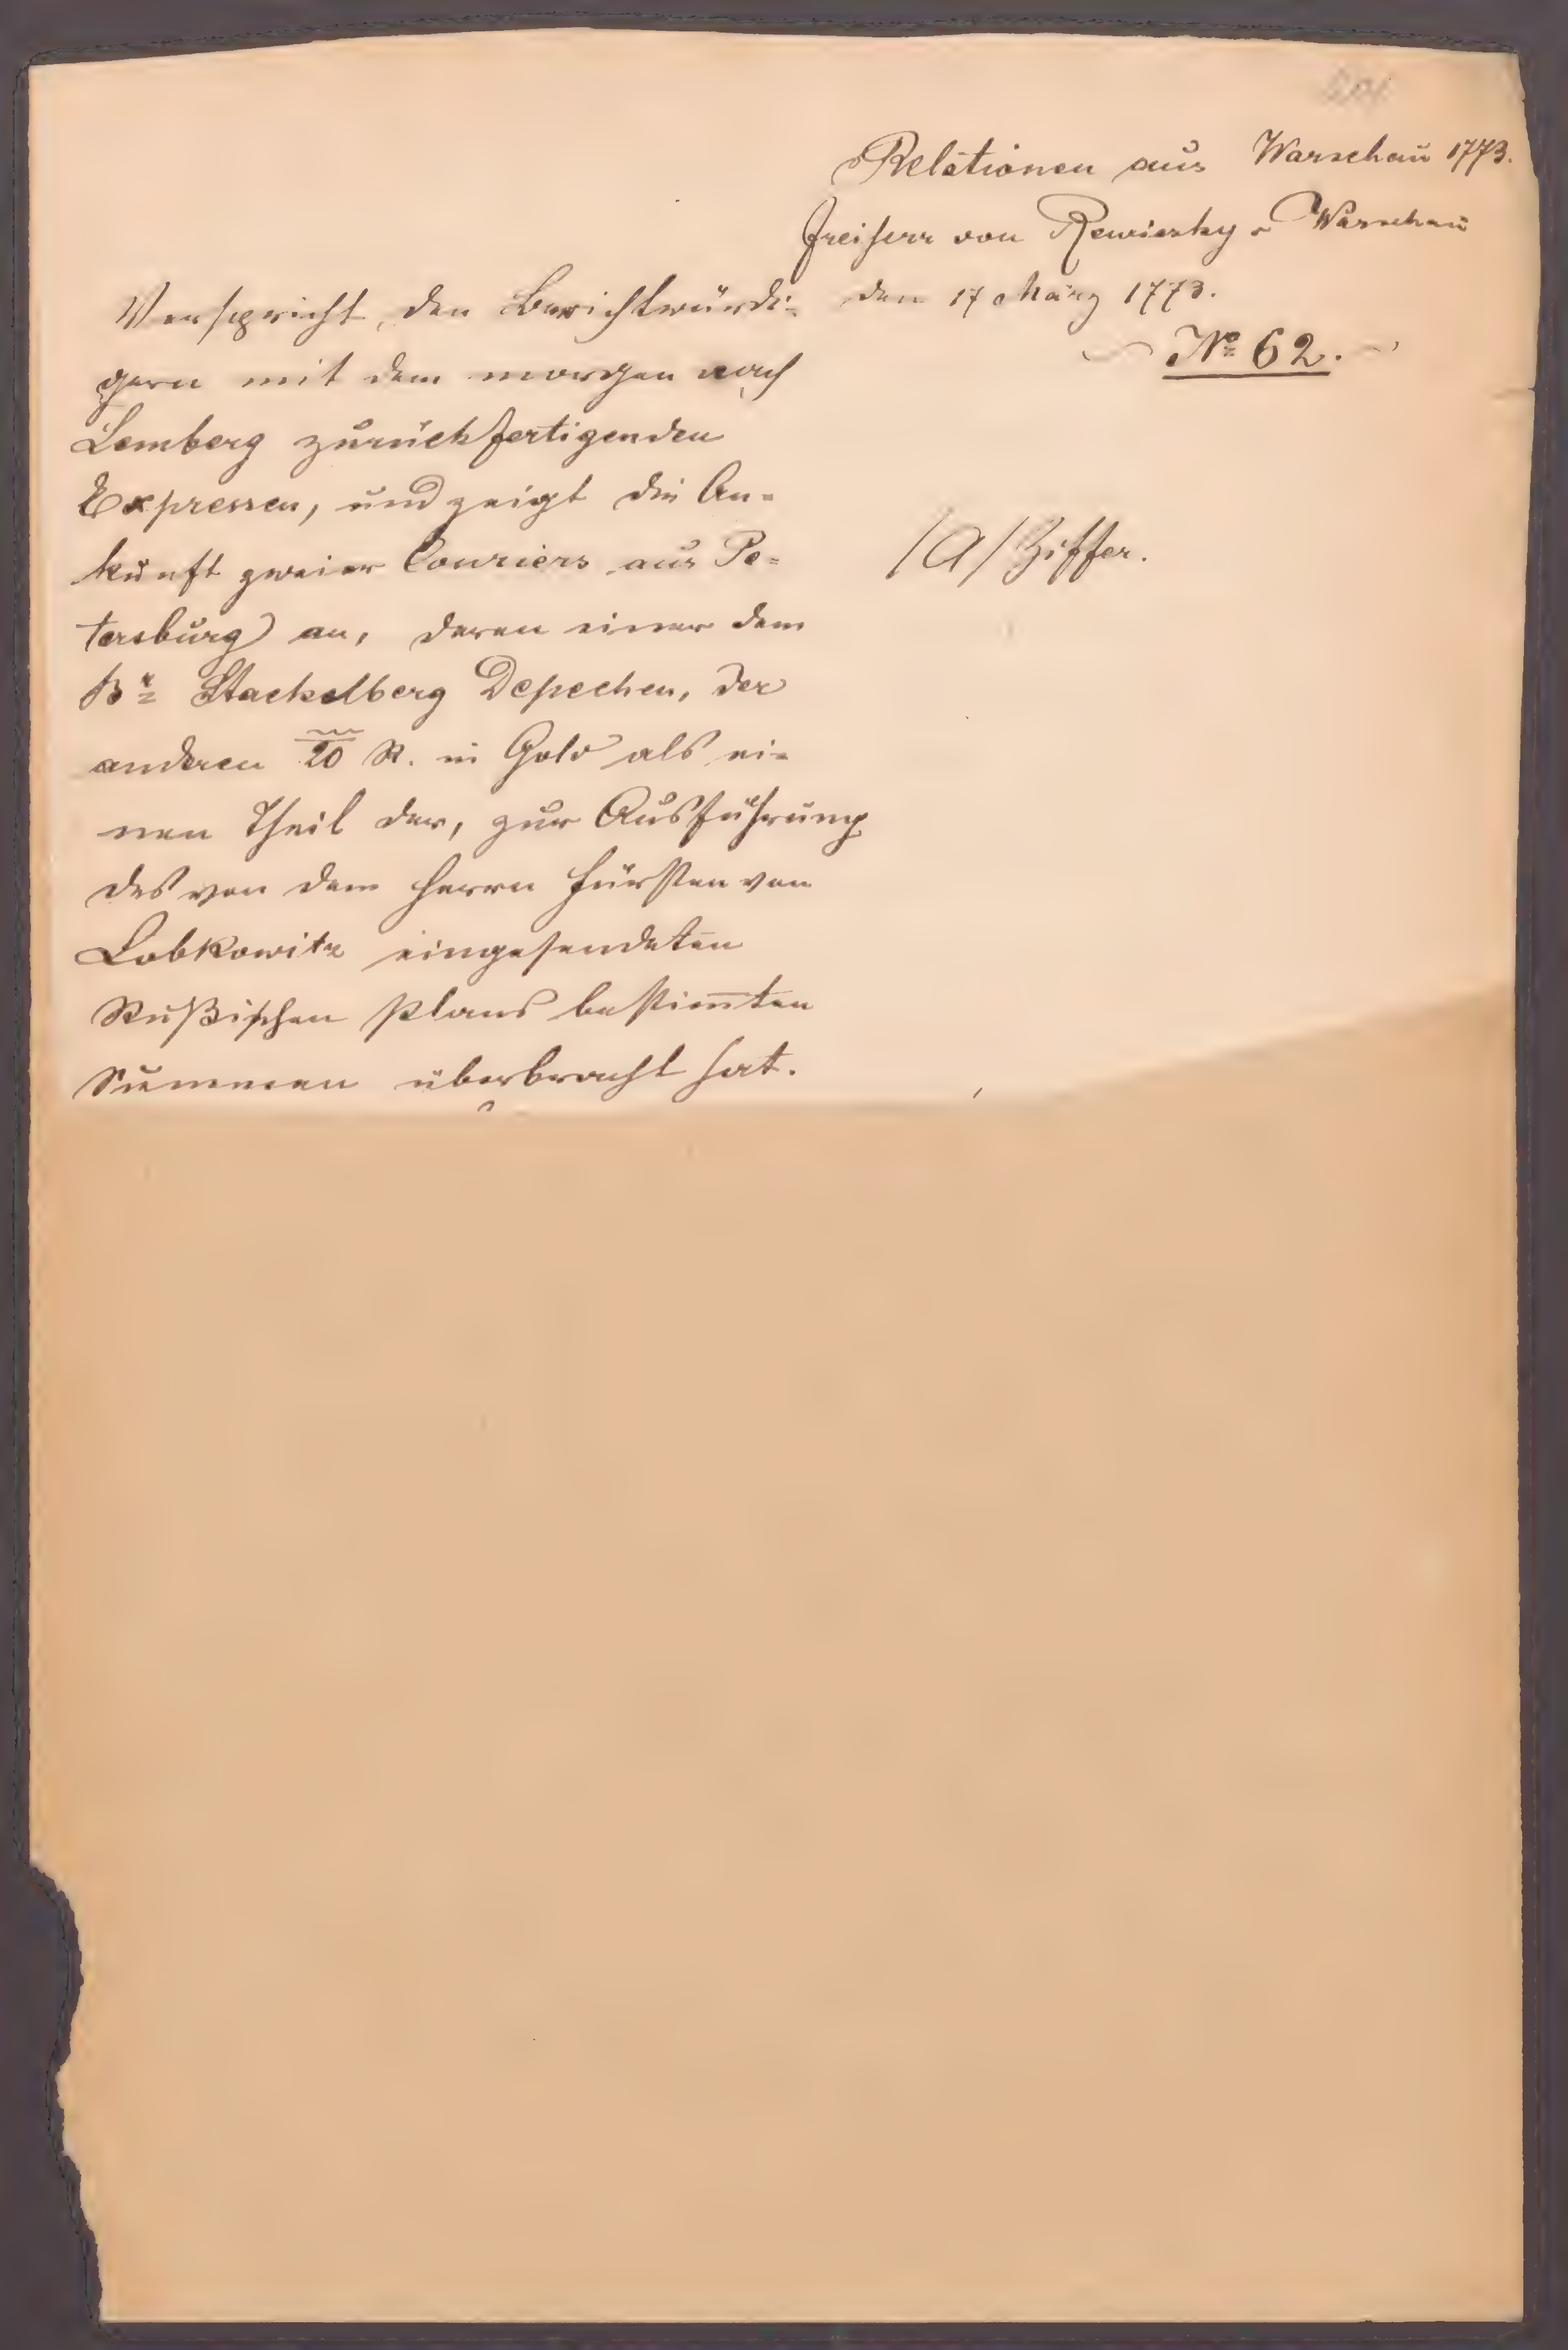 Relationen aus Warschau 1773.
Freiherr von Rewiczky Warschau
den 17 März 1773.
No 62.
Verspricht, den Berichtwürdi-
gern mit dem morgen nach
Lemberg zurückfertigenden
Expressen, und zeigt die An-
kunft zweier Couriers aus Pe-
tersburg an, deren einer dem
Br Stackelberg Depechen, der
anderen 20 R. in Gold als ei-
nen Theil der, zur Ausführung
des von dem Herrn Fürsten von
Lobkowitz eingesendeten
Rußischen Plans bestim̅ten
Summen überbracht hat.
/A/ Ziffer.